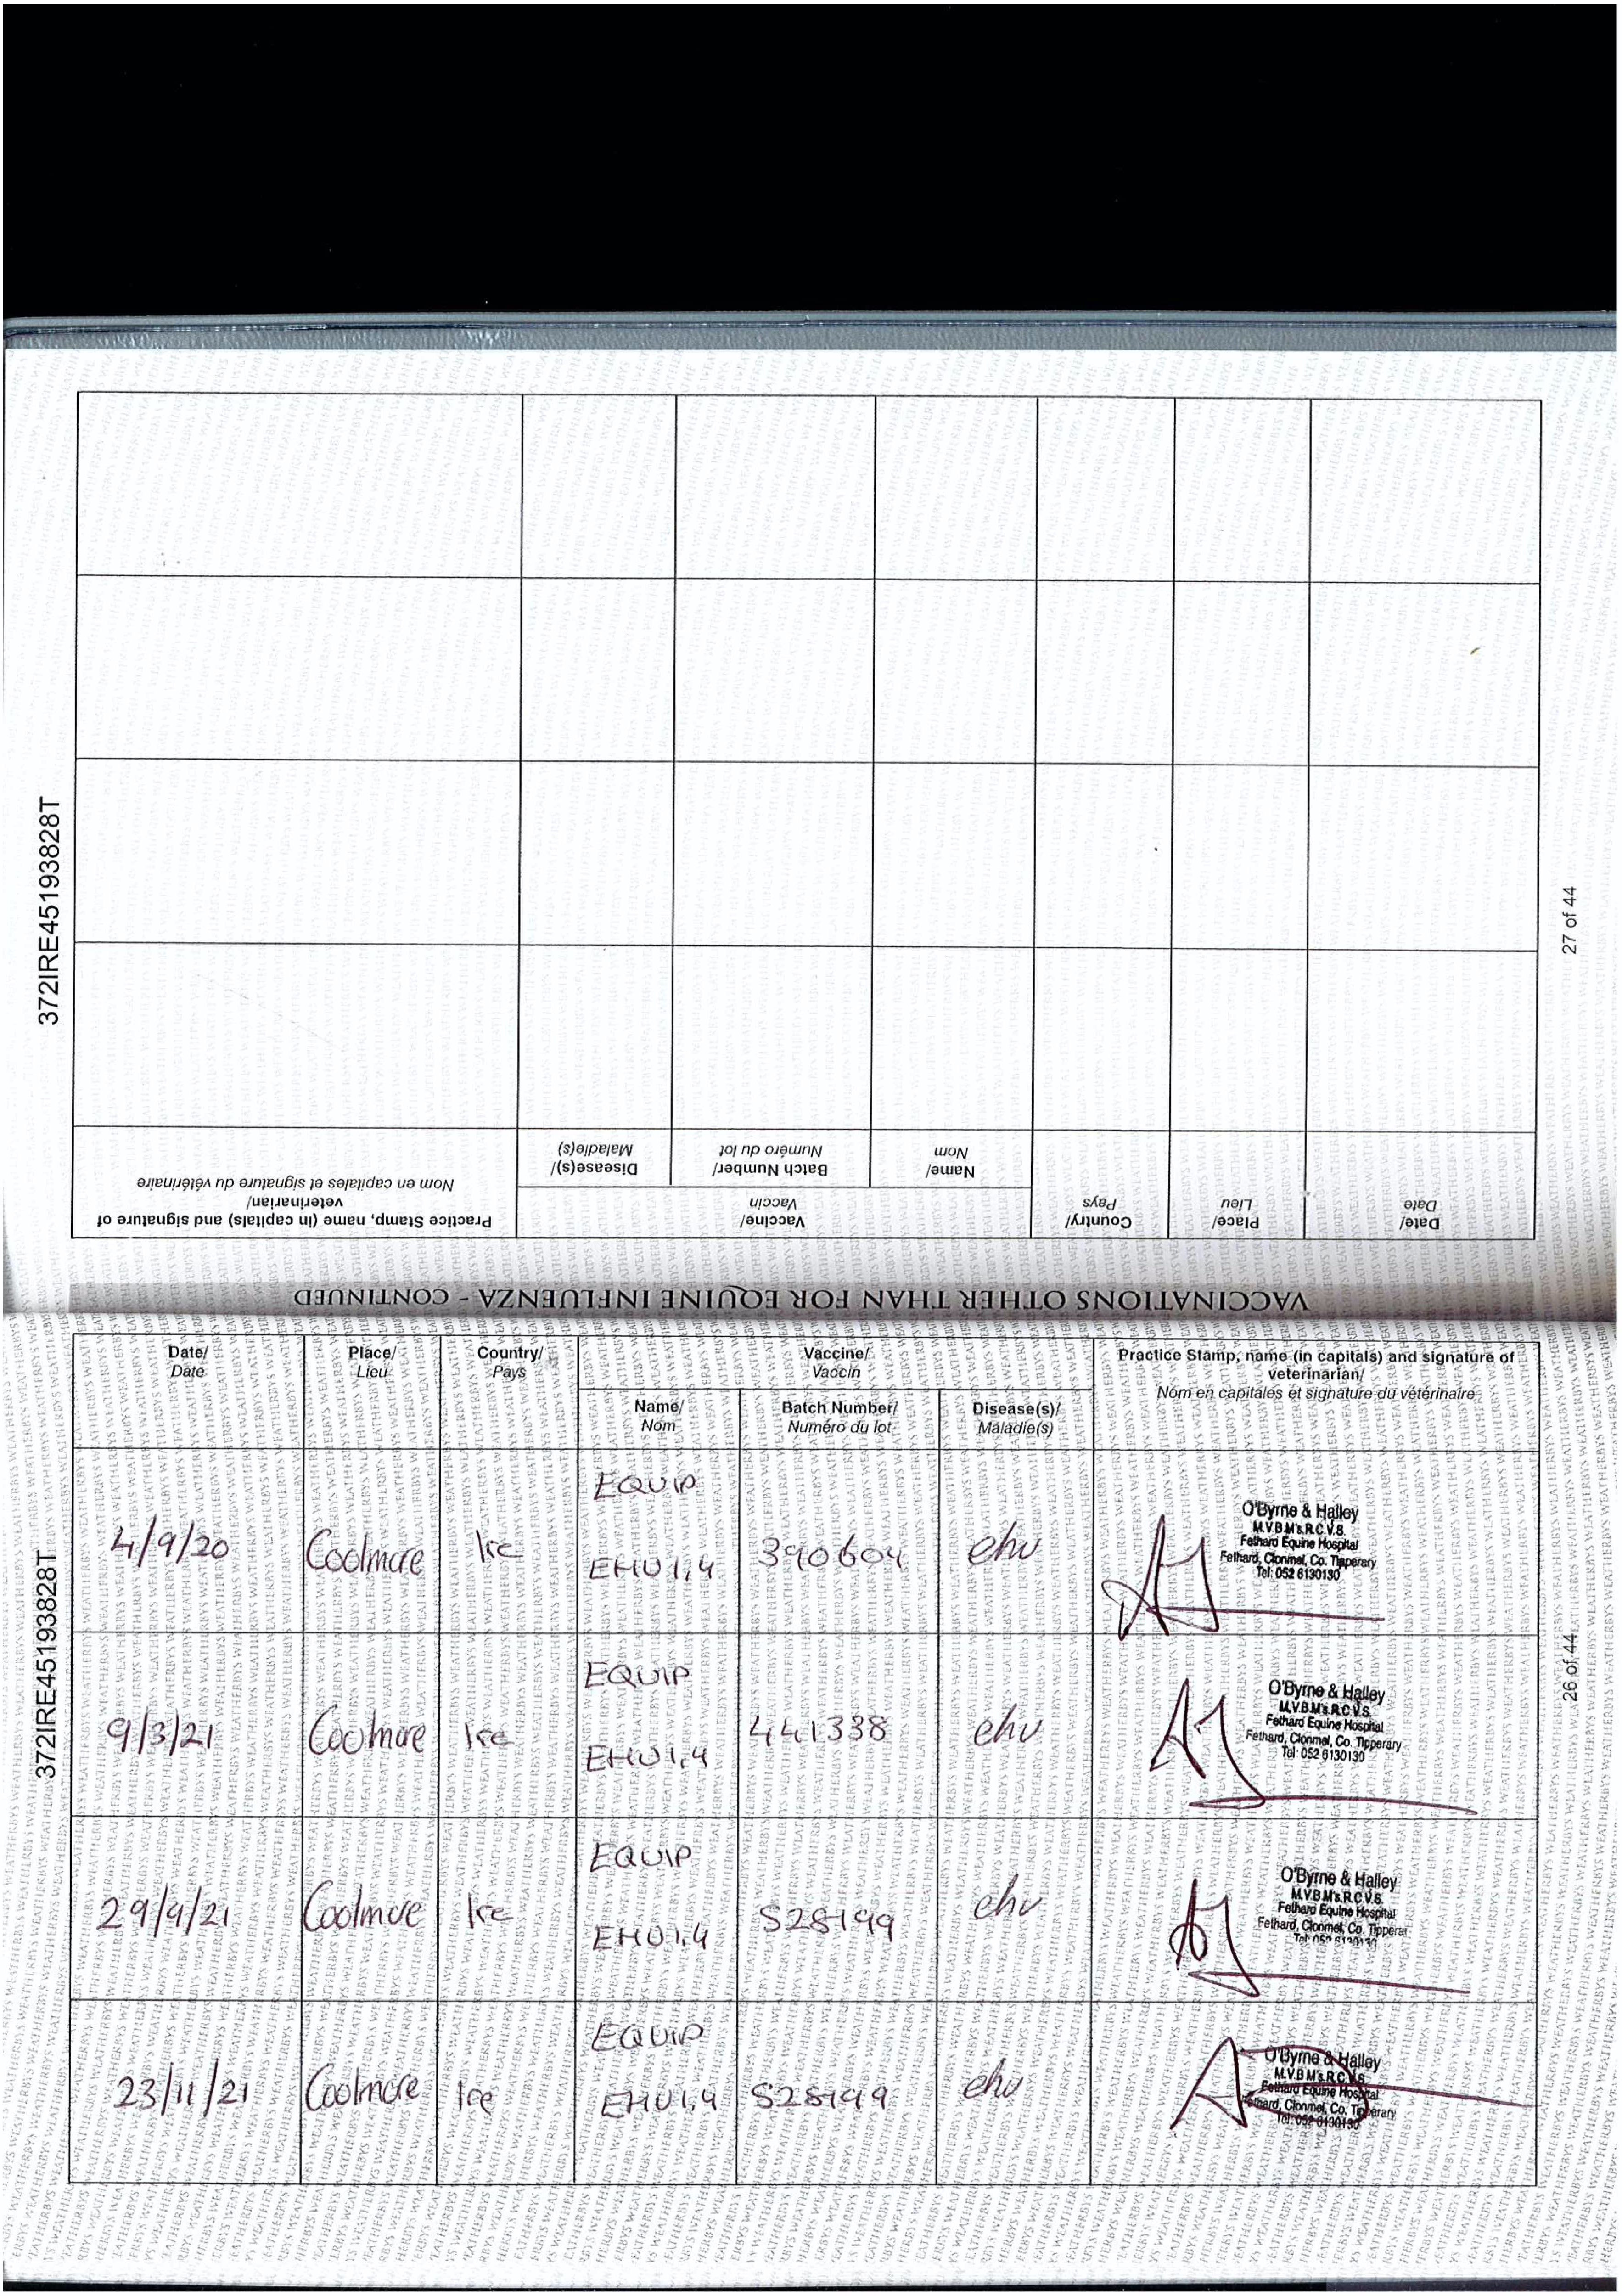 372IRE45193828T
27 of 44
VACCINATIONS OTHER THAN FOR EQUINE INFLUENZA - CONTINUED
Date/
Date
Place/
Lieu
Country/
Pays
Vaccine/
Vaccin
Name/
Nom
Batch Number/
Numéro du lot
Disease(s)/
Maladie(s)
Practice Stamp, name (in capitals) and signature of
veterinarian/
Nom en capitales et signature du vétérinaire
372IRE45193828T
26 of 44
Date/
Date
Place/
Lieu
Country/
Pays
Vaccine/
Vaccin
Name/
Nom
Batch Number/
Numéro du lot
Disease(s)/
Maladie(s)
Practice Stamp, name (in capitals) and signature of
veterinarian/
Nom en capitales et signature du vétérinaire
4/9/20 Coolmore Ire EQUIP
EHV1,4 390604 ehv
O'Byrne & Halley
M.V.B.M's.R.C.V.S.
Fethard Equine Hospital
Fethard, Clonmel, Co. Tipperary
Tel: 052 6130130
9/3/21 Coolmore Ire EQUIP
EHV1,4 441338 ehv
O'Byrne & Halley
M.V.B.M's.R.C.V.S.
Fethard Equine Hospital
Fethard, Clonmel, Co. Tipperary
Tel: 052 6130130
29/9/21 Coolmore Ire EQUIP
EHV1,4 528499 ehv
O'Byrne & Halley
M.V.B.M's.R.C.V.S.
Fethard Equine Hospital
Fethard, Clonmel, Co. Tipperar
Tel: 052 6130130
23/11/21 Coolmore Ire EQUIP
EHV1,4 528499 ehv
O'Byrne & Halley
M.V.B.M's.R.C.V.S.
Fethard Equine Hospital
Fethard, Clonmel, Co. Tipperary
Tel: 052 6130130